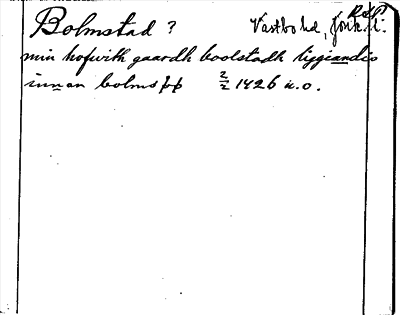 Bolmstad ? Västbo hd, Jönk. l.
RAP
min hofwith gaardh boolstadh liggiandis
innan bolms pp 2/2 1426 u.o.